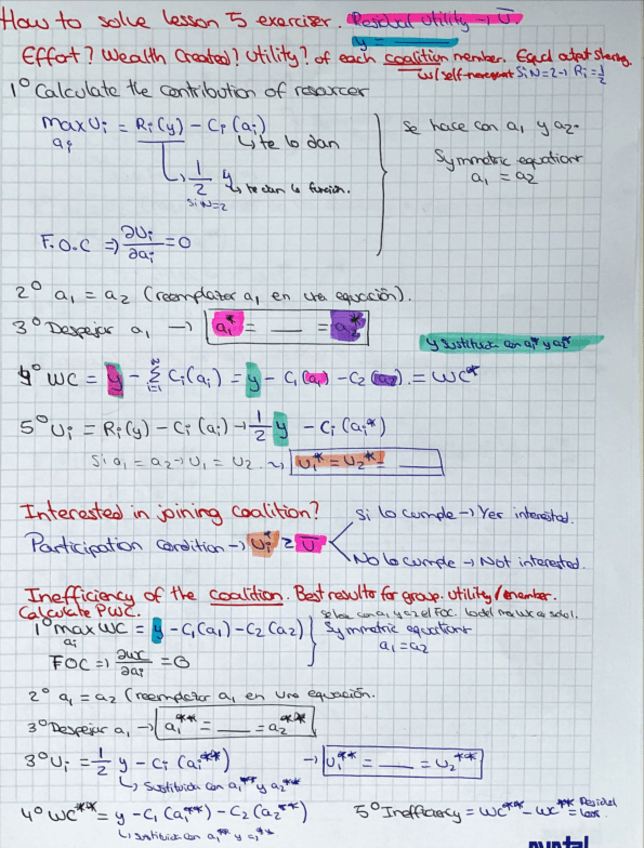 How to solve lesson 5 exercises. Residual utility → U̅.
y = ______
Effort? Wealth Created? Utility? of each coalition member. Equal output sharing.
w/ self-management Si N=2 → Ri = 1/2
1º Calculate the contribution of resources
max Ui = Ri(y) - Ci(ai)
ai
↳ te lo dan
↳ 1/2 y
↳ te dan la función.
si N=2
Se hace con a1 y a2.
Symmetric equations
a1 = a2
F.O.C ⇒ ∂Ui/∂ai = 0
2º a1 = a2 (reemplazar a1 en una equación).
3º Despejar a1 → a1* = ___ = a2*
y sustituida con a1* y a2*
4º WC = y - Σ Ci(ai) = y - C1(a1) - C2(a2) = WC*
5º Ui = Ri(y) - Ci(ai) → 1/2 y - Ci(ai*)
Si a1 = a2 → U1 = U2 → U1* = U2* = ____
Interested in joining coalition?
Participation condition → Ui* ≥ U̅
Si lo cumple → Yes interested.
No lo cumple → Not interested.
Inefficiency of the coalition. Best results for group. Utility/member.
Calculate PWC.
1º max WC = y - C1(a1) - C2(a2)
ai
Symmetric equations
a1 = a2
FOC ⇒ ∂WC/∂ai = 0
2º a1 = a2 (reemplazar a1 en una equación.
3º Despejar a1 → a1** = ___ = a2**
3º Ui = 1/2 y - Ci(ai**) → U1** = ___ = U2**
↳ Sustituida con a1** y a2**
4º WC** = y - C1(a1**) - C2(a2**)
↳ sustituida con a1** y a2**
5º Inefficiency = WC** - WC* = Residual Loss.